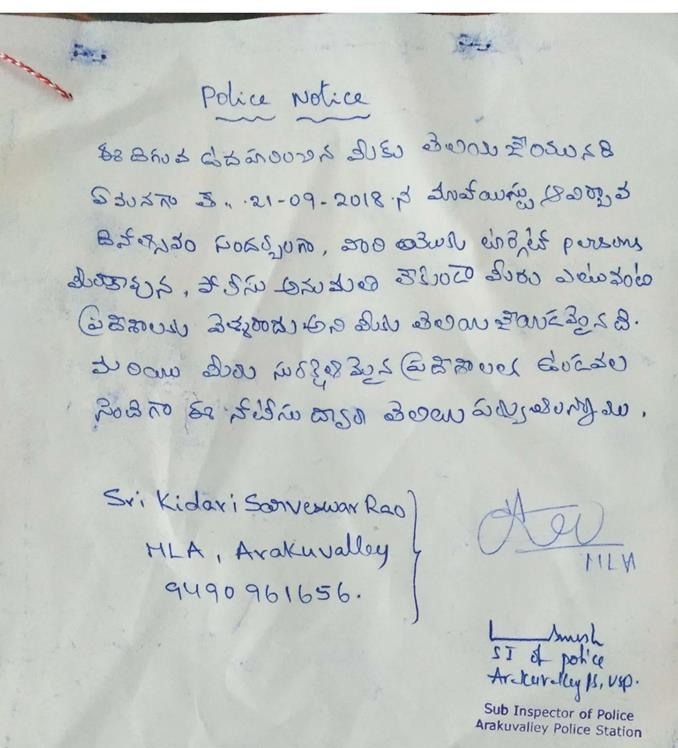 Police Notice
ఈ దిగువ ఉదహరించిన మీకు తెలియజేయునది
ఏమనగా తే.. 21-09-2018 న మావోయిస్టు ఆవిర్భావ
దినోత్సవం సందర్భంగా, వారి యొక్క టార్గెట్ persons
మీరు కావున, పోలీసు అనుమతి లేకుండా మీరు ఎటువంటి
ప్రదేశాలకు వెళ్ళరాదు అని మీకు తెలియజేయడమైనది.
మరియు మీరు సురక్షితమైన ప్రదేశాలలో ఉండవల
సిందిగా ఈ నోటీసు ద్వారా తెలియ పర్చుచున్నాము.
Sri Kidari Sarveswar Rao
MLA, Arakuvalley
9490 961656.
MLA
SI of police
Arakuvalley PS, VSP.
Sub Inspector of Police
Arakuvalley Police Station